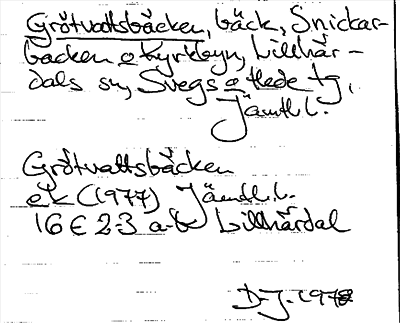 Grötvattsbäcken, bäck, Snickar-
backen o Kyrkbyn, Lillhär-
dals sn, Svegs o Hede tg,
Jämtl.l.
Grötvattsbäcken
ek (1977) Jämtl.l.
16 E 2-3 a-b Lillhärdal
D-J. 1978